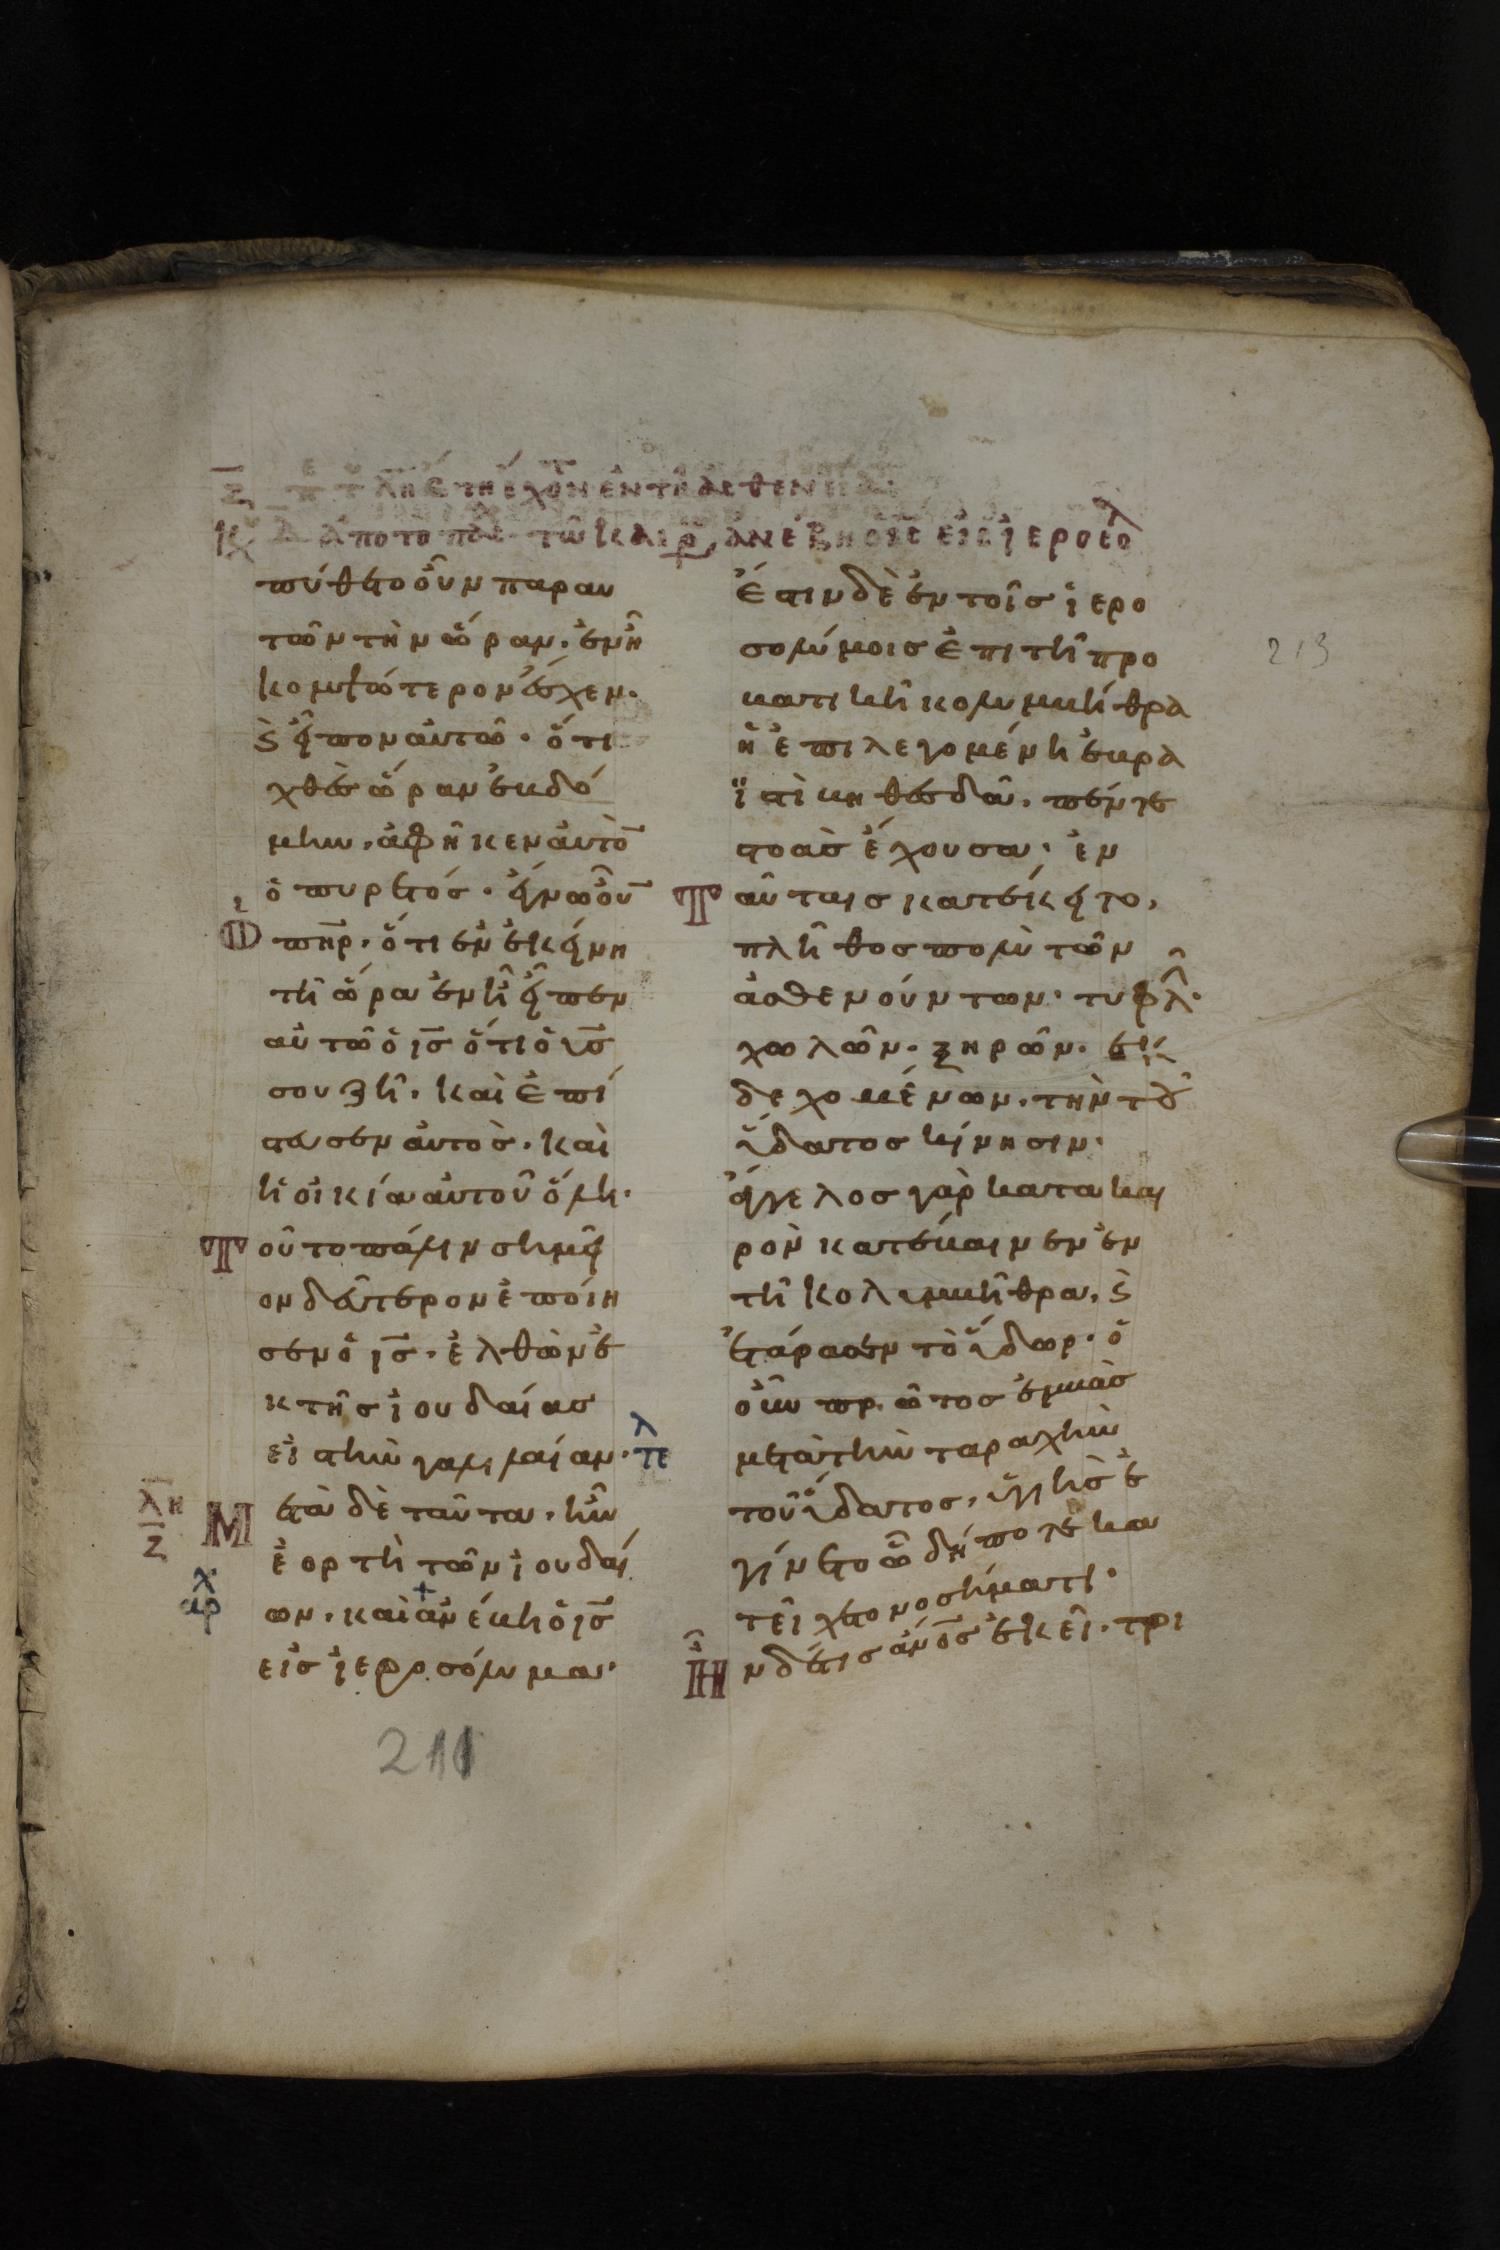 πύθετο οὖν παρ αυ
τῶν τὴν ὥραν. ἐν ἧ
κομψότερον ἔσχεν.
ϛ εἶπον αὐτῶ. ὅτι
χθὲς ὥραν ἑβδό
μην. ἀφῆκεν αὐτὸ̅
ὁ πυρετός. ἔγνω οὖ̅
ὁ πη̅ρ. ὅτι ἐν ἐκείνη
τῆ ὥρα ἐν ἧ εἶπεν
αὐτῶ ὁ ι̅ς ὅτι ὁ υ̅ς
σου ζῆ. καὶ ἐπί
στευσεν αὐτὸς. καὶ
ἡ οἰκία αὐτοῦ ὅλη.
Τοῦτο πάλιν σημεῖ
ον δεύτερον ἐποίη
σεν ὁ ι̅ς. ἐλθὼν ἐ
κ τῆς ἰουδαίας
εἰς τὴν γαλιλαίαν. τε λ
λη ζ
Μετὰ δὲ ταῦτα. ἦν
ἑορτὴ τῶν ἰουδαί
αρχ
ων. καὶ ἀνέβη ὁ ι̅ς
εἰς ἱεροσόλυμα.
211
Ἔστιν δὲ ἐν τοῖς ἱερο
σολύμοις ἐπὶ τῆ προ
βατικῆ κολυμβήθρα
ἡ ἐπιλεγομένη ἑβρα
ϊστὶ βηθεσδά. πέντε
στοὰς ἔχουσα. ἐν
Ταύταις κατέκειτο.
πλῆθος πολὺ τῶν
ἀσθενούντων. τυφλ̂.
χωλῶν. ξηρῶν. ἐκ
δεχομένων. τὴν τοῦ
ὕδατος κίνησιν.
ἄγγελος γὰρ κατὰ και
ρὸν κατέβαινεν ἐν
τῆ κολυμβῆθρα. ϛ
ἐτάρασσεν τὸ ὕδωρ. ὁ
οὖν πρῶτος ἐμβὰς
μετὰ τὴν ταραχὴν
τοῦ ὕδατος. ὑγιὴς ἐ
γίνετο ὧ δήποτε κα
τείχετο νοσήματι.
Ἦν δέ τις α̅νο̅ς ἐκεῖ. τρι
213